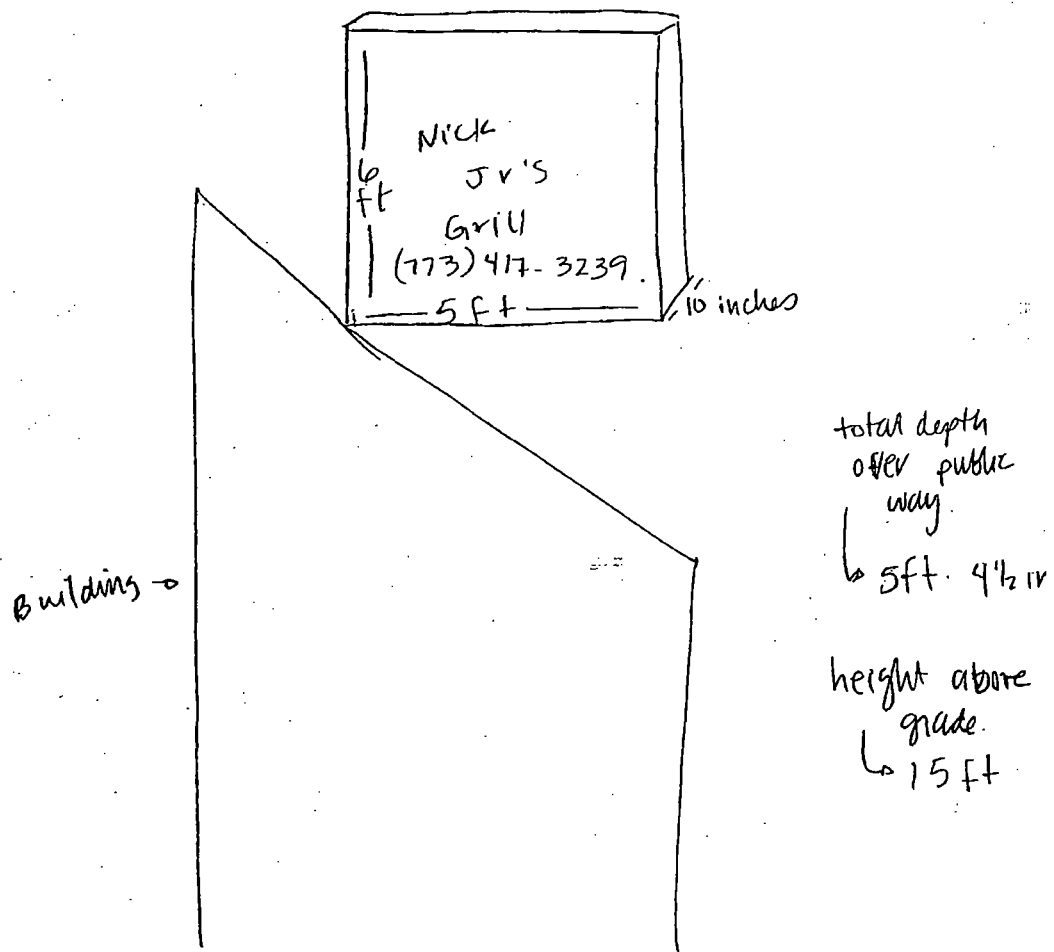 Nick
Jr's
Grill
(773) 417-3239.
6
ft
5 ft
10 inches
Building
total depth
over public
way.
5ft. 4½ in
height above
grade.
15 ft